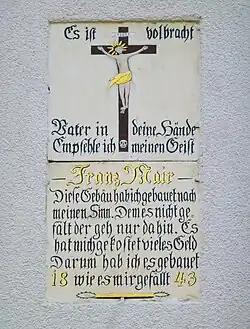 Es ist volbracht
Vater in deine Hände
Empfehle ich meinen Geist
Franz Mair
Diese Gebäu hab ich gebauet nach
meinen Sinn. Dem es nicht ge
fält der geh nur dahin. Es
hat mich gekostet vieles Geld
Darum hab ich es gebauet
18 wie es mir gefällt 43